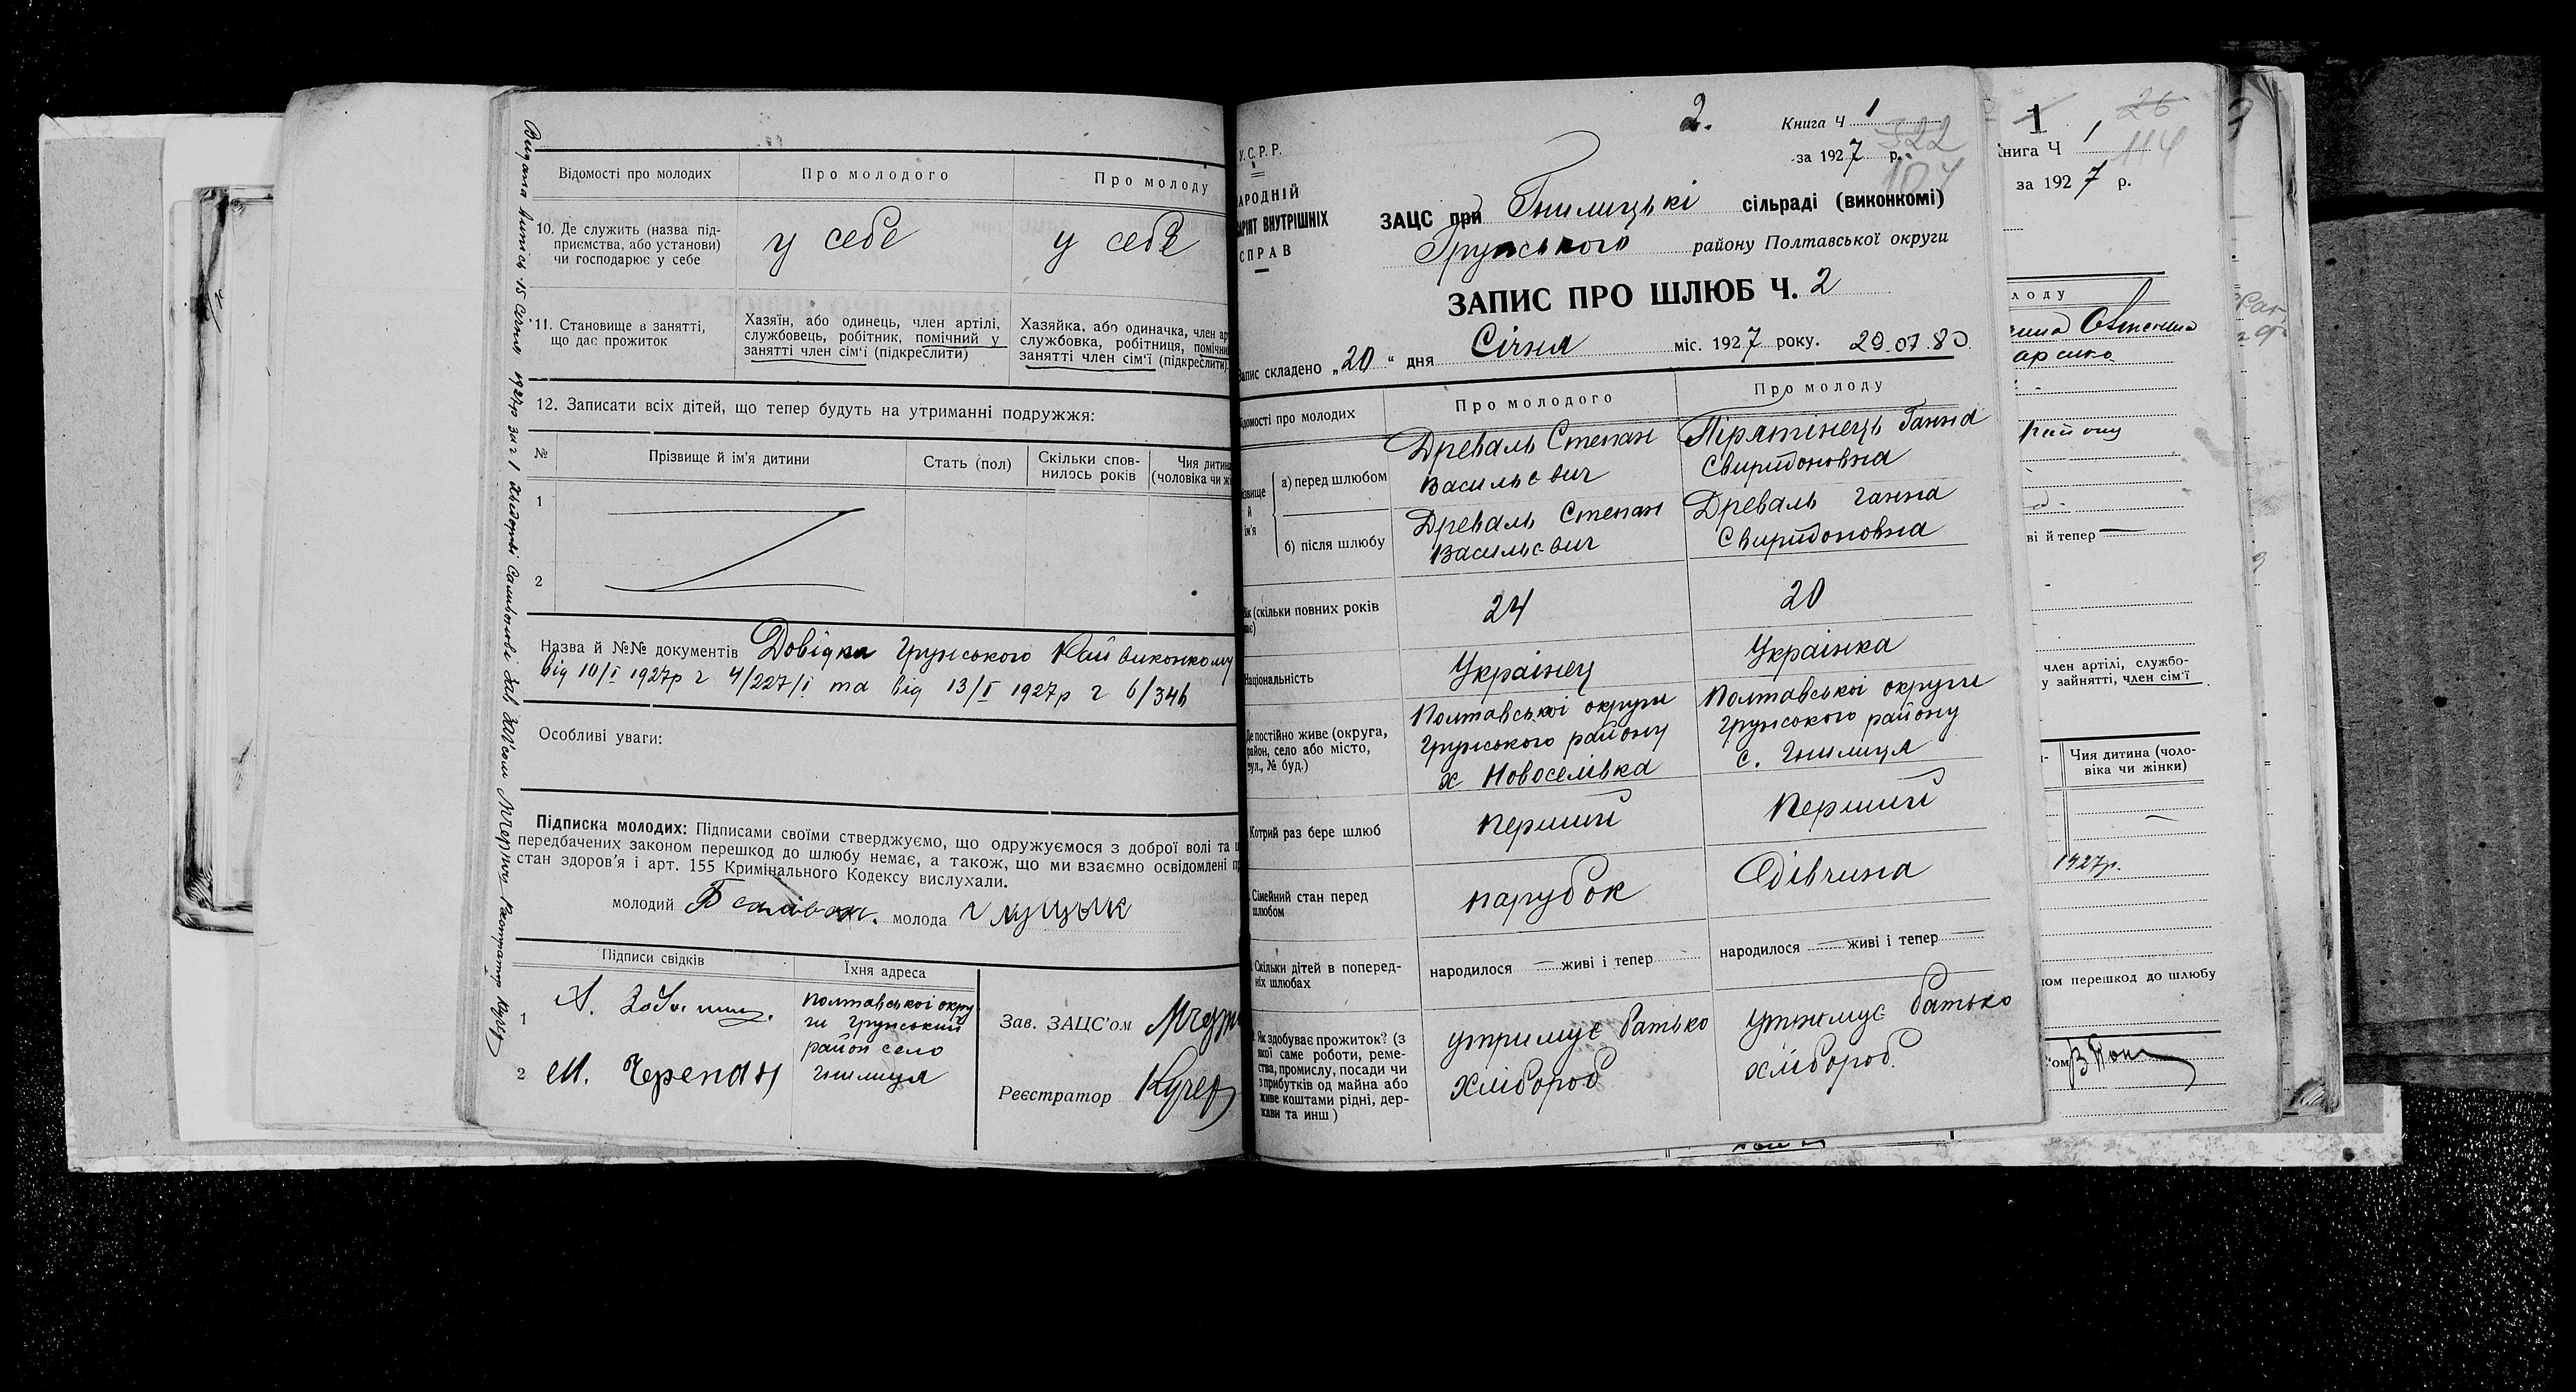 Відомості про молодих
Про молодого
Про молоду
10. Де служить (назва під-
приємства, або установи)
чи господарює у себе
у себе
у себе
11. Становище в занятті,
що дає прожиток
Хазяїн, або одинець, член артілі,
службовець, робітник, помічний у
занятті член сім'ї (підкреслити)
Хазяйка, або одиначка, член ар
службовка, робітниця, помічни
занятті член сім'ї (підкреслити)
12. Записати всіх дітей, що тепер будуть на утриманні подружжя:
№
Прізвище й ім'я дитини
Стать (пол)
Скільки спов-
нилось років
Чия дитина
(чоловіка чи жі
1
2
Назва й №№ документів Довідка Грунського Райвиконкому
від 10/I 1927р г 4/227/I та від 13/I 1927р г 6/346
Особливі уваги:
Підписка молодих: Підписами своїми стверджуємо, що одружуємося з доброї волі та щ
передбачених законом перешкод до шлюбу немає, а також, що ми взаємно освідомлені п
стан здоров'я і арт. 155 Кримінального Кодексу вислухали.
молодий
молода
Підписи свідків
Їхня адреса
1
2 М. Черепан
Полтавської окру
ги Грунський
район село
Гнилиця
Зав. ЗАЦС'ом
Реєстратор Кучер
2.
Книга Ч 1
322
за 1927 р.
107
У.С.Р.Р.
АРОДНІЙ
АРІЯТ ВНУТРІШНІХ
СПРАВ
ЗАЦС при Гнилицькі сільраді (виконкомі)
Грунського району Полтавської округи
ЗАПИС ПРО ШЛЮБ Ч. 2
Запис складено „20" дня Січня міс. 1927 року. 29.07.80
домості про молодих
Про молодого
Про молоду
ізвище
й
ім'я
а) перед шлюбом
Древаль Степан
Васильєвич
Пірятінець Ганна
Свиридоновна
б) після шлюбу
Древаль Степан
Васильєвич
Древаль Ганна
Свиридоновна
Вік (скільки повних років
має)
24
20
Національність
Українец
Українка
Де постійно живе (округа,
район, село або місто,
вул., № буд.)
Полтавської округи
Грунського району
х Новоселівка
Полтавської округи
Грунського району
с. Гнилиця
Котрий раз бере шлюб
Перший
Перший
Сімейний стан перед
шлюбом
парубок
Дівчина
Скільки дітей в поперед-
ніх шлюбах
народилося — живі і тепер
народилося — живі і тепер —
Як здобуває прожиток? (з
якої саме роботи, реме-
ства, промислу, посади чи
з прибутків од майна або
живе коштами рідні, дер-
жави та инш)
утримує батько
хлібороб
утримує батько
хлібороб.
1
26
нига Ч 1
114
за 1927 р.
лоду
району
ві й тепер —
член артілі, службо-
у зайнятті, член сім'ї
Чия дитина (чоло-
віка чи жінки)
1927р.
ом перешкод до шлюбу
'ом